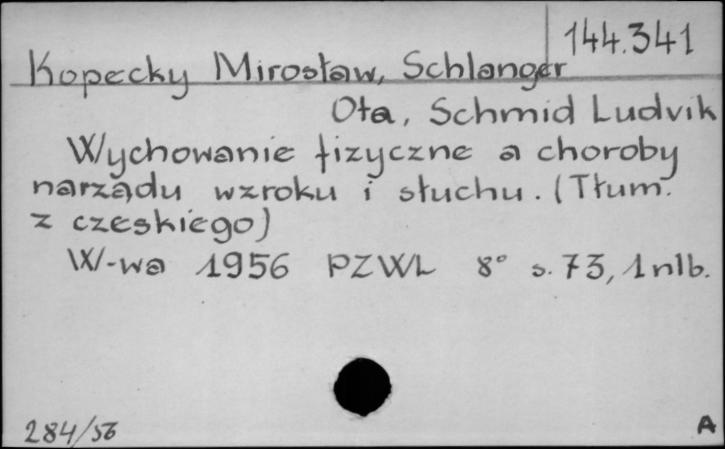 144.341
Kopecky Mirosław, Schlanger
Ota, Schmid Ludvik
Wychowanie fizyczne a choroby
narządu wzroku i słuchu. (Tłum.
z czeskiego)
W-wa 1956 PZWL 8° s. 73, 1 nlb.
284/56
A